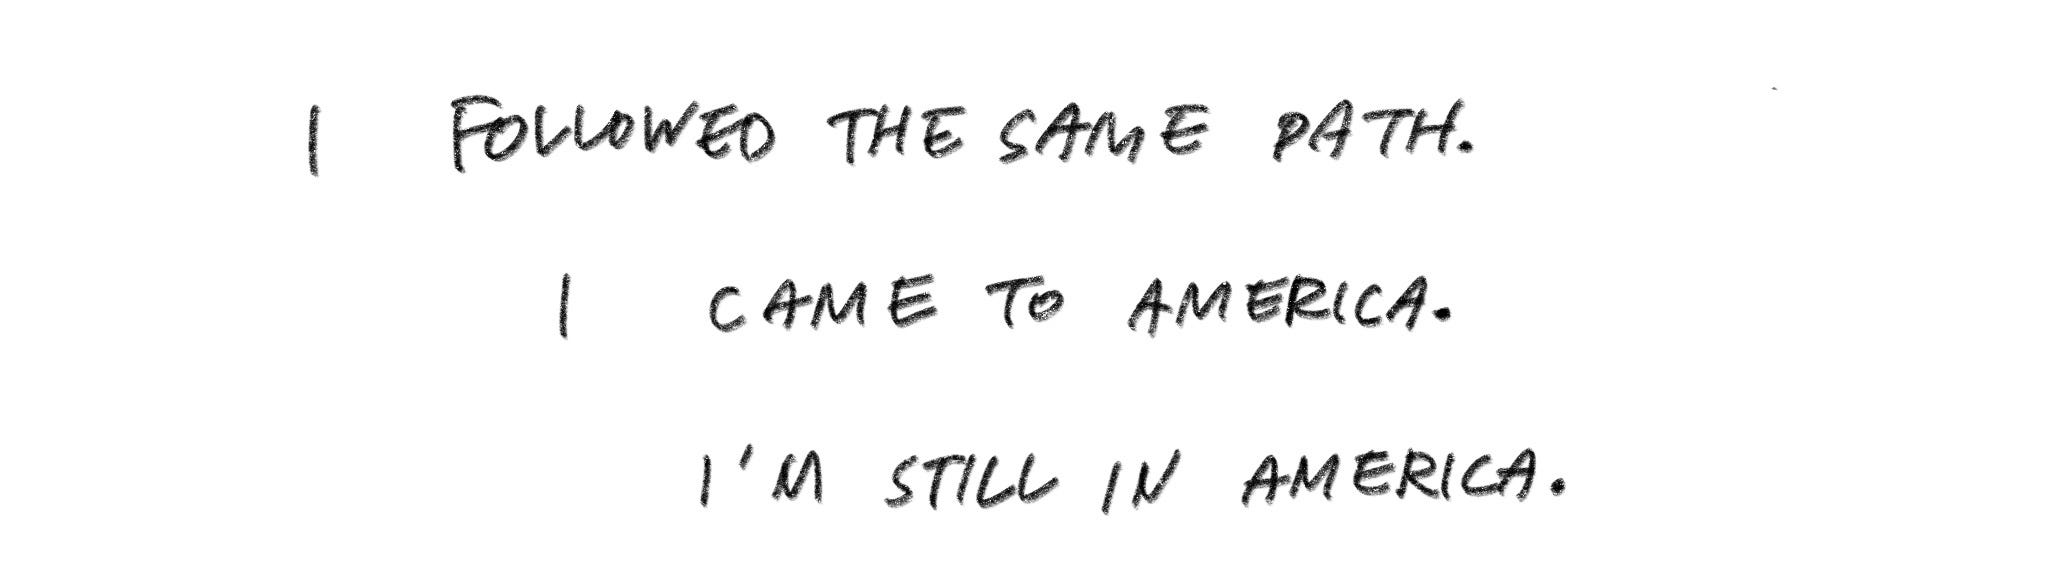 I FOLLOWED THE SAME PATH.
I CAME TO AMERICA.
I'M STILL IN AMERICA.